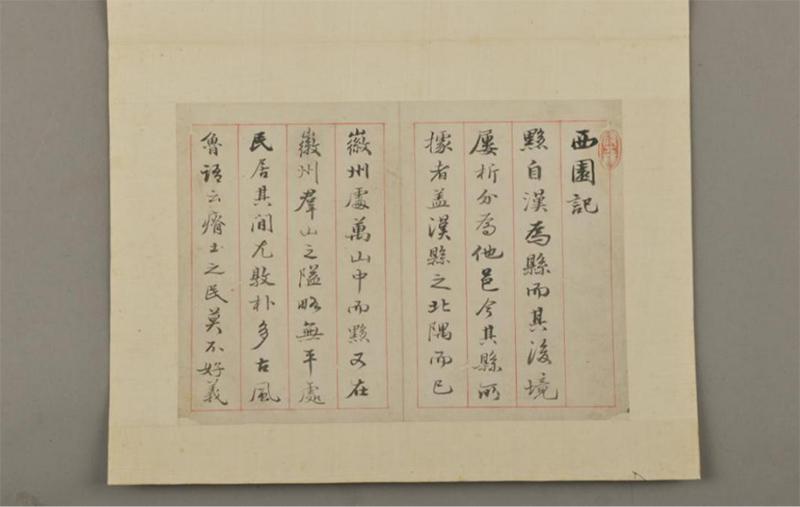 西園記
黟自漢爲縣而其後境
屢析分爲他邑今其縣所
據者蓋漢縣之北隅而已
徽州處萬山中而黟又在
徽州羣山之隘略無平處
民居其間尤敦朴多古風
魯語云瘠土之民莫不好義